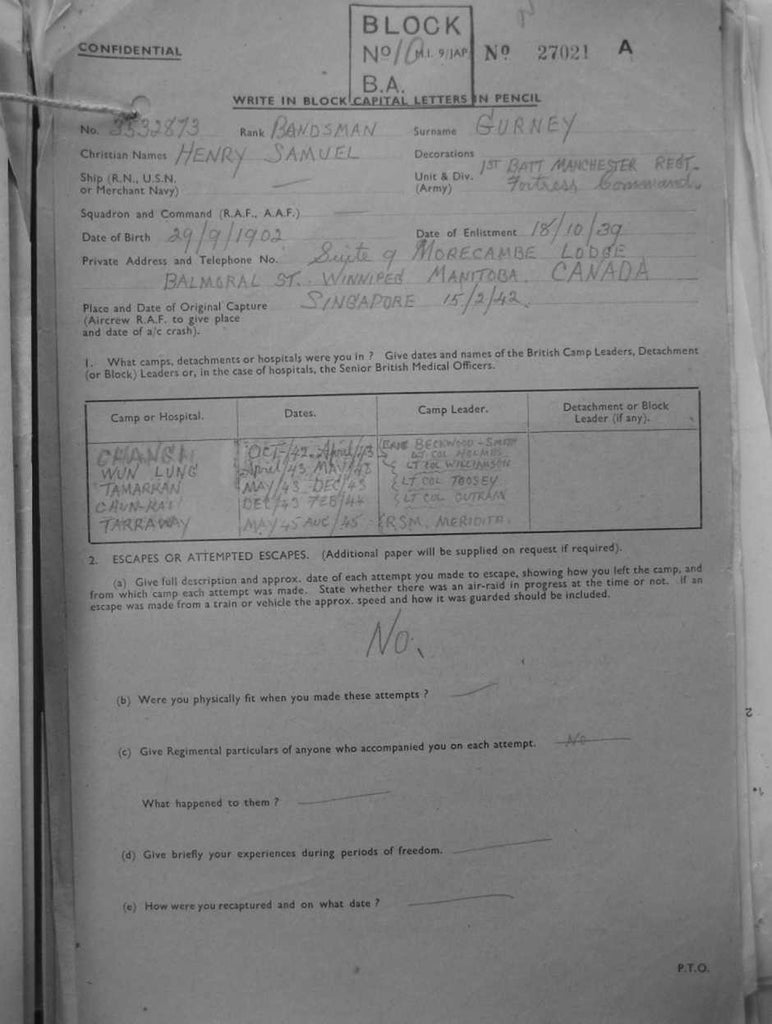 BLOCK
CONFIDENTIAL
No 10 M.I. 9/JAP No 27021 A
B.A.
WRITE IN BLOCK CAPITAL LETTERS IN PENCIL
No. 3532873 Rank BANDSMAN Surname GURNEY
Christian Names HENRY SAMUEL Decorations
Ship (R.N., U.S.N. or Merchant Navy) — Unit & Div. (Army) 1ST BATT MANCHESTER REGT. Fortress Command.
Squadron and Command (R.A.F., A.A.F.) —
Date of Birth 29/9/1902 Date of Enlistment 18/10/39
Private Address and Telephone No. Suite 9 MORECAMBE LODGE
BALMORAL ST. WINNIPEG MANITOBA. CANADA
Place and Date of Original Capture SINGAPORE 15/2/42.
(Aircrew R.A.F. to give place
and date of a/c crash).
1. What camps, detachments or hospitals were you in ? Give dates and names of the British Camp Leaders, Detachment
(or Block) Leaders or, in the case of hospitals, the Senior British Medical Officers.
Camp or Hospital. Dates. Camp Leader. Detachment or Block Leader (if any).
CHANGI OCT/42. April/43 BECKWOOD-SMITH
LT COL HOLMES
WUN LUNG April/43 MAY/43 LT COL WILLIAMSON
TAMARKAN MAY/43 DEC/43 LT COL TOOSEY
CHUN-KAI DEC/43 FEB/44 LT COL OUTRAM
TARRAWAY MAY 45 AUG/45 RSM. MERIDITH.
2. ESCAPES OR ATTEMPTED ESCAPES. (Additional paper will be supplied on request if required).
(a) Give full description and approx. date of each attempt you made to escape, showing how you left the camp, and
from which camp each attempt was made. State whether there was an air-raid in progress at the time or not. If an
escape was made from a train or vehicle the approx. speed and how it was guarded should be included.
No.
(b) Were you physically fit when you made these attempts ? —
(c) Give Regimental particulars of anyone who accompanied you on each attempt. No
What happened to them ? —
(d) Give briefly your experiences during periods of freedom. —
(e) How were you recaptured and on what date ? —
P.T.O.